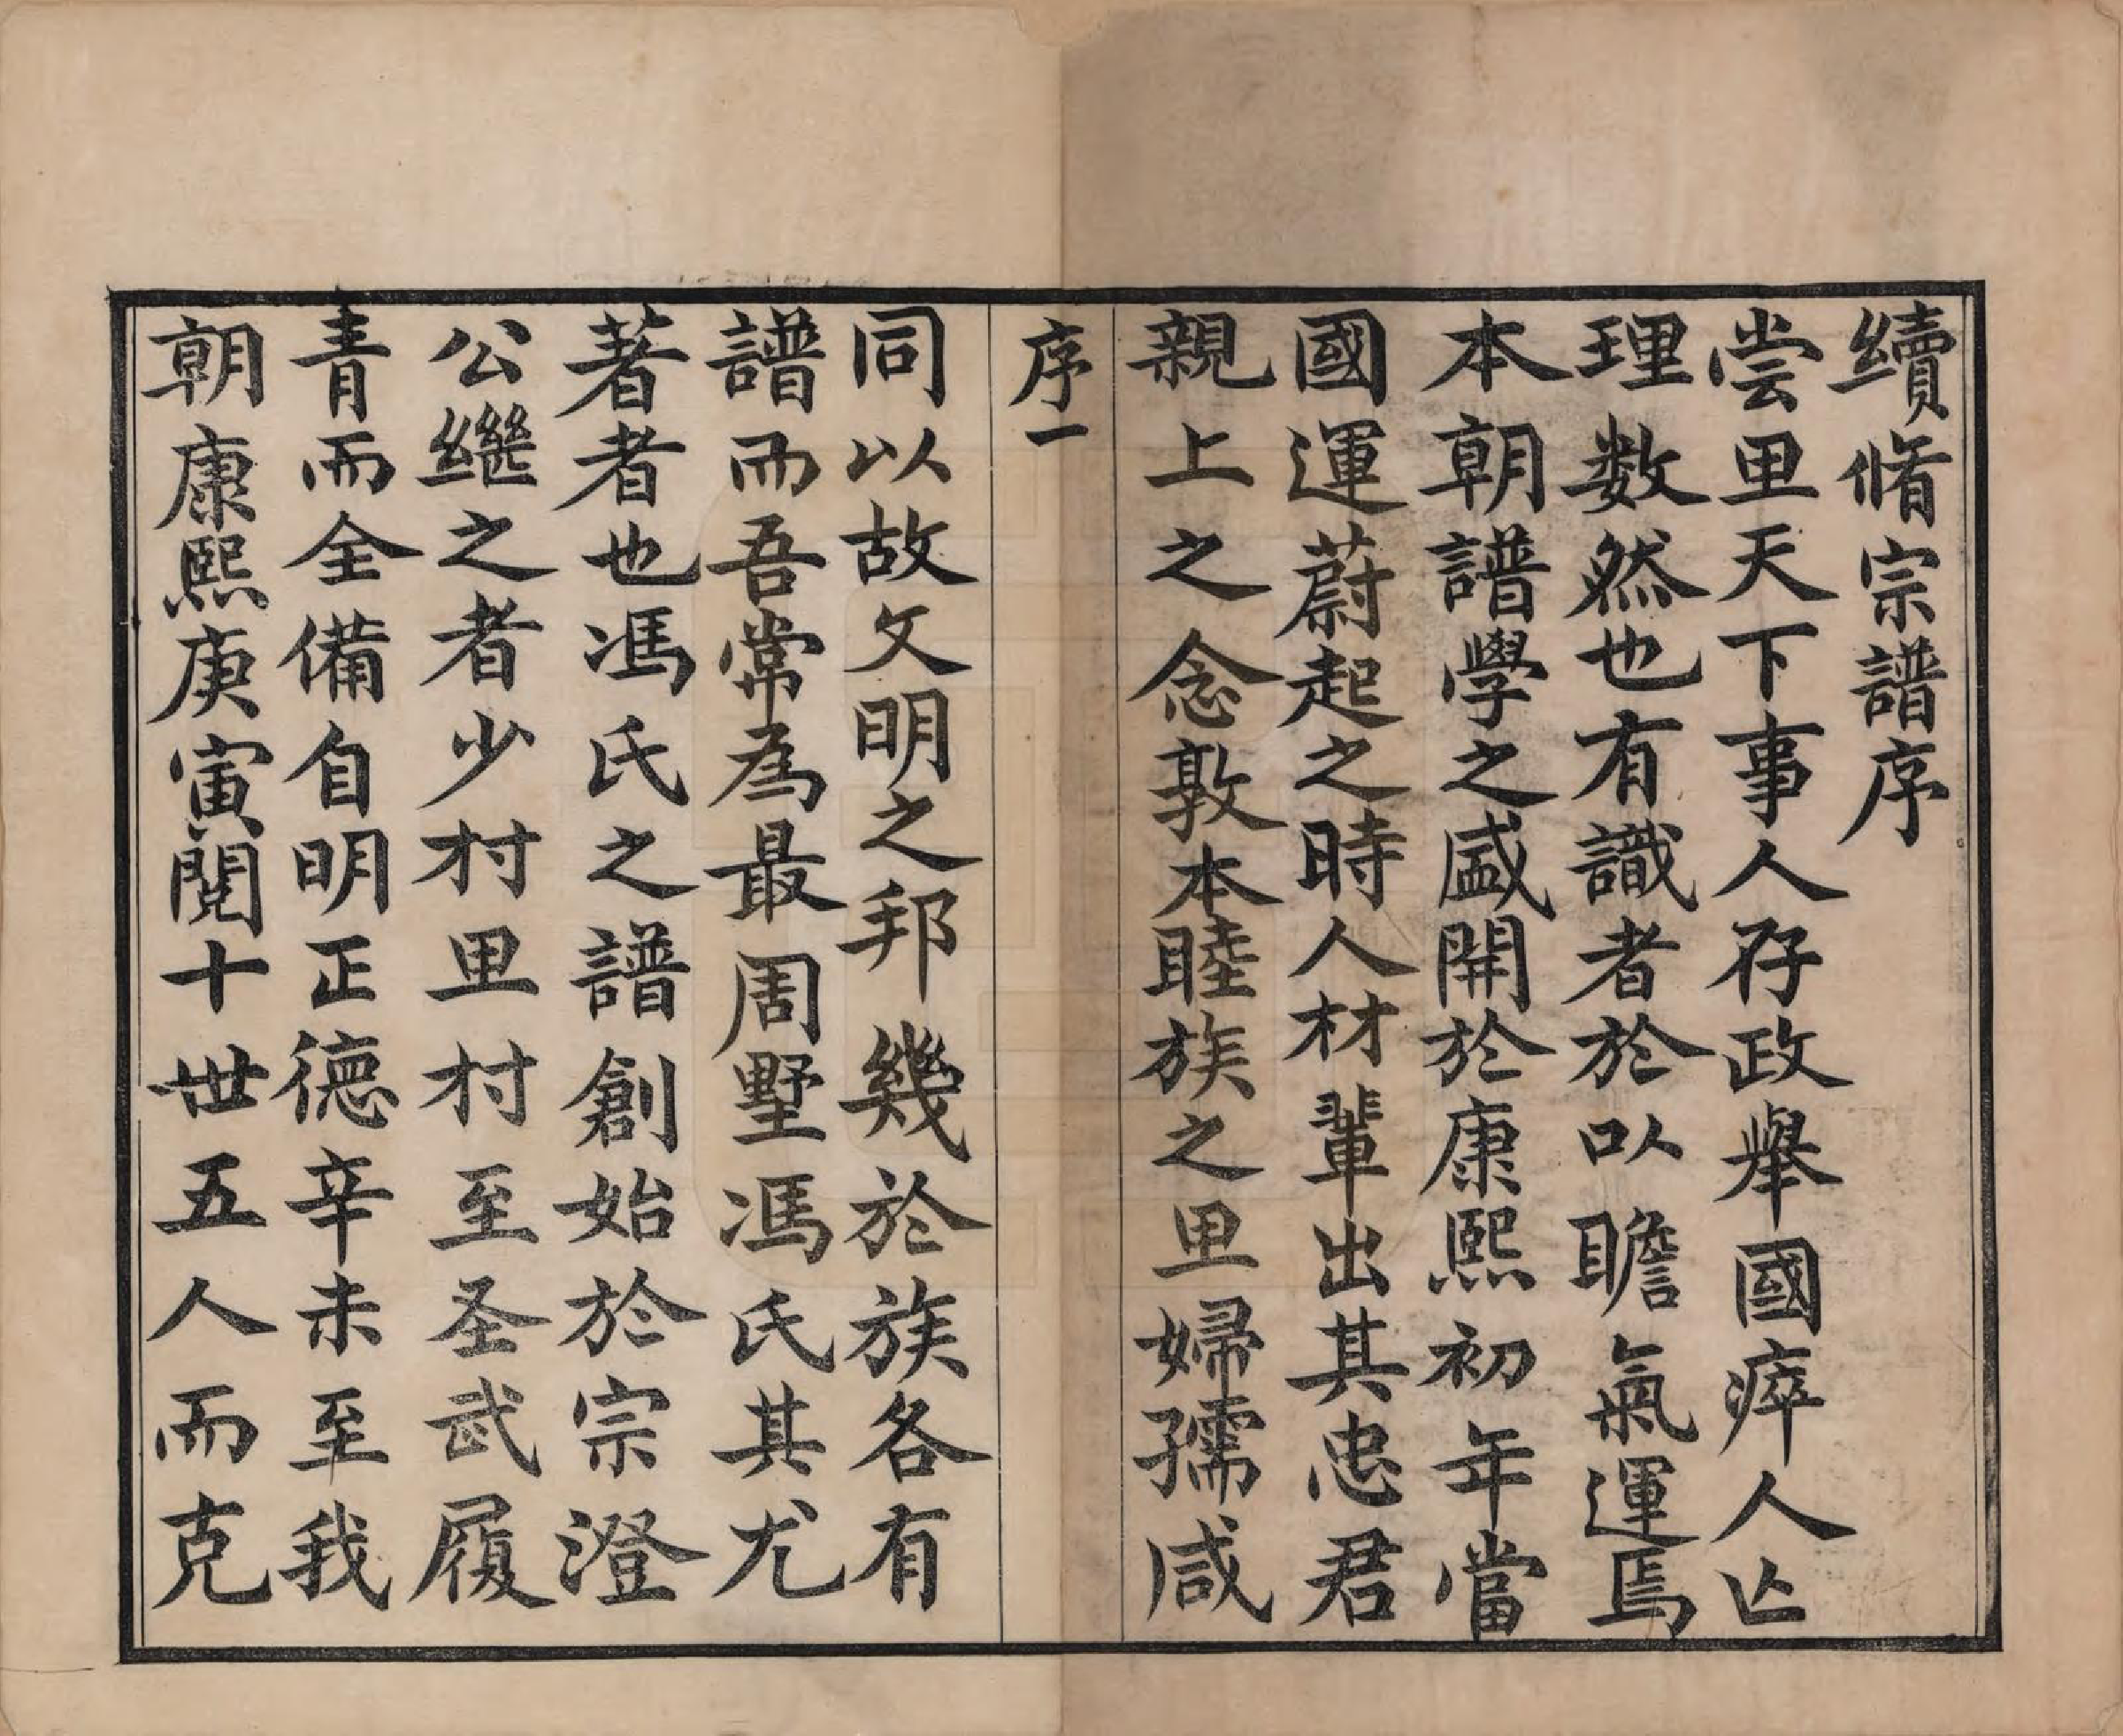 續脩宗譜序
尝里天下事人存政舉國瘁人亾
理数然也有識者於以瞻氣運焉
本朝譜學之盛開於康熙初年當
國運蔚起之時人材輩出其忠君
親上之念敦本睦族之里婦孺咸
序一
同以故文明之邦幾於族各有
譜而吾常為最周墅馮氏其尤
著者也馮氏之譜創始於宗澄
公继之者少村里村至圣武履
青而全備自明正德辛未至我
朝康熙庚寅閱十世五人而克